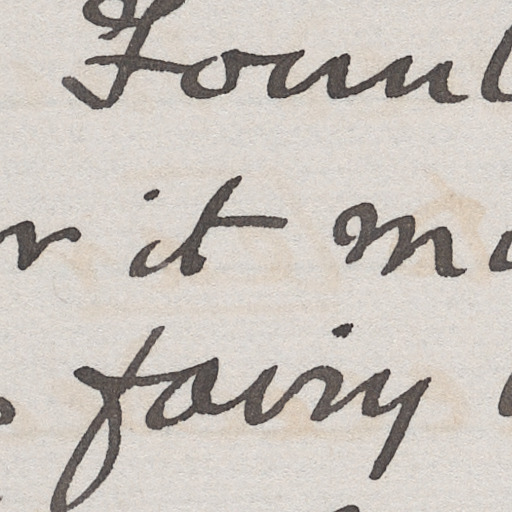 Fount
r it ma
fairy